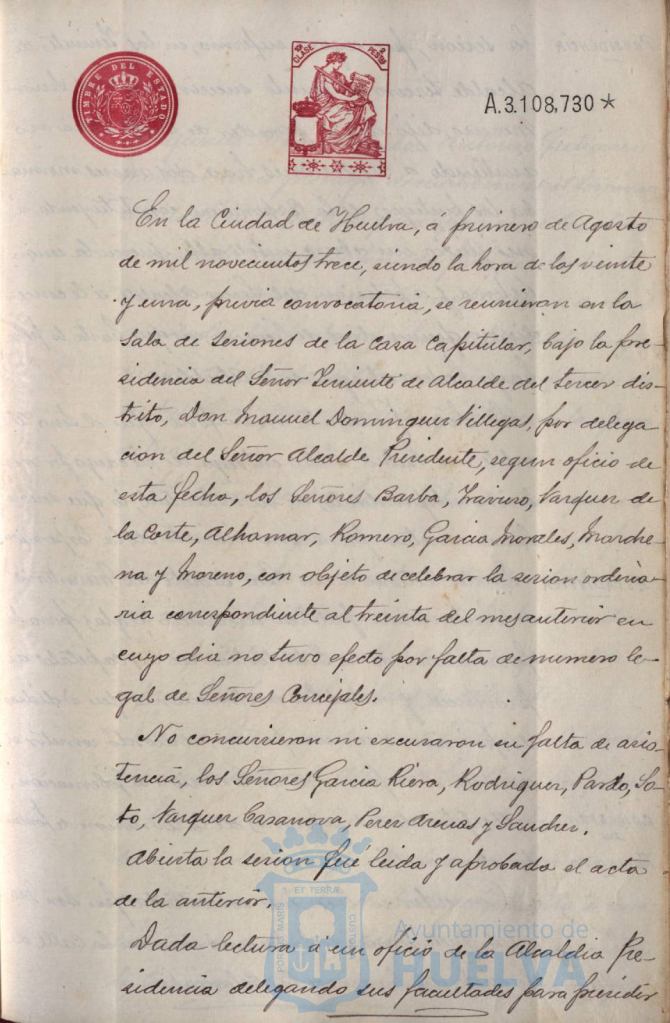 TIMBRE DEL ESTADO
10ª CLASE
PESETAS
A.3.108,730*
En la Ciudad de Huelva, á primero de Agosto
de mil novecientos trece, siendo la hora de las veinte
y una, previa convocatoria, se reunieron en la
Sala de Sesiones de la Casa Capitular, bajo la pre-
sidencia del Señor Teniente de Alcalde del tercer dis-
trito, Don Manuel Dominguez Villegas, por delega
cion del Señor Alcalde Presidente, segun oficio de
esta fecha, los Señores Barba, Travieso, Vazquez de
la Corte, Alhamar, Romero, Garcia Morales, Marche-
na y Moreno, con objeto de celebrar la sesion ordina-
ria correspondiente al treinta del mes anterior en
cuyo dia no tuvo efecto por falta de numero le-
gal de Señores Concejales.
No concurrieron ni excusaron su falta de asis-
tencia, los Señores Garcia Riera, Rodriguez, Pardo, So-
to, Vazquez Casanova, Perez Arenas y Sanchez.
Abierta la sesion fué leida y aprobada el acta
de la anterior.
Dada lectura á un oficio de la Alcaldia Pre-
sidencia delegando sus facultades para presidir
PORTUS MARIS ET TERRAE CUSTODIA
Ayuntamiento de
HUELVA